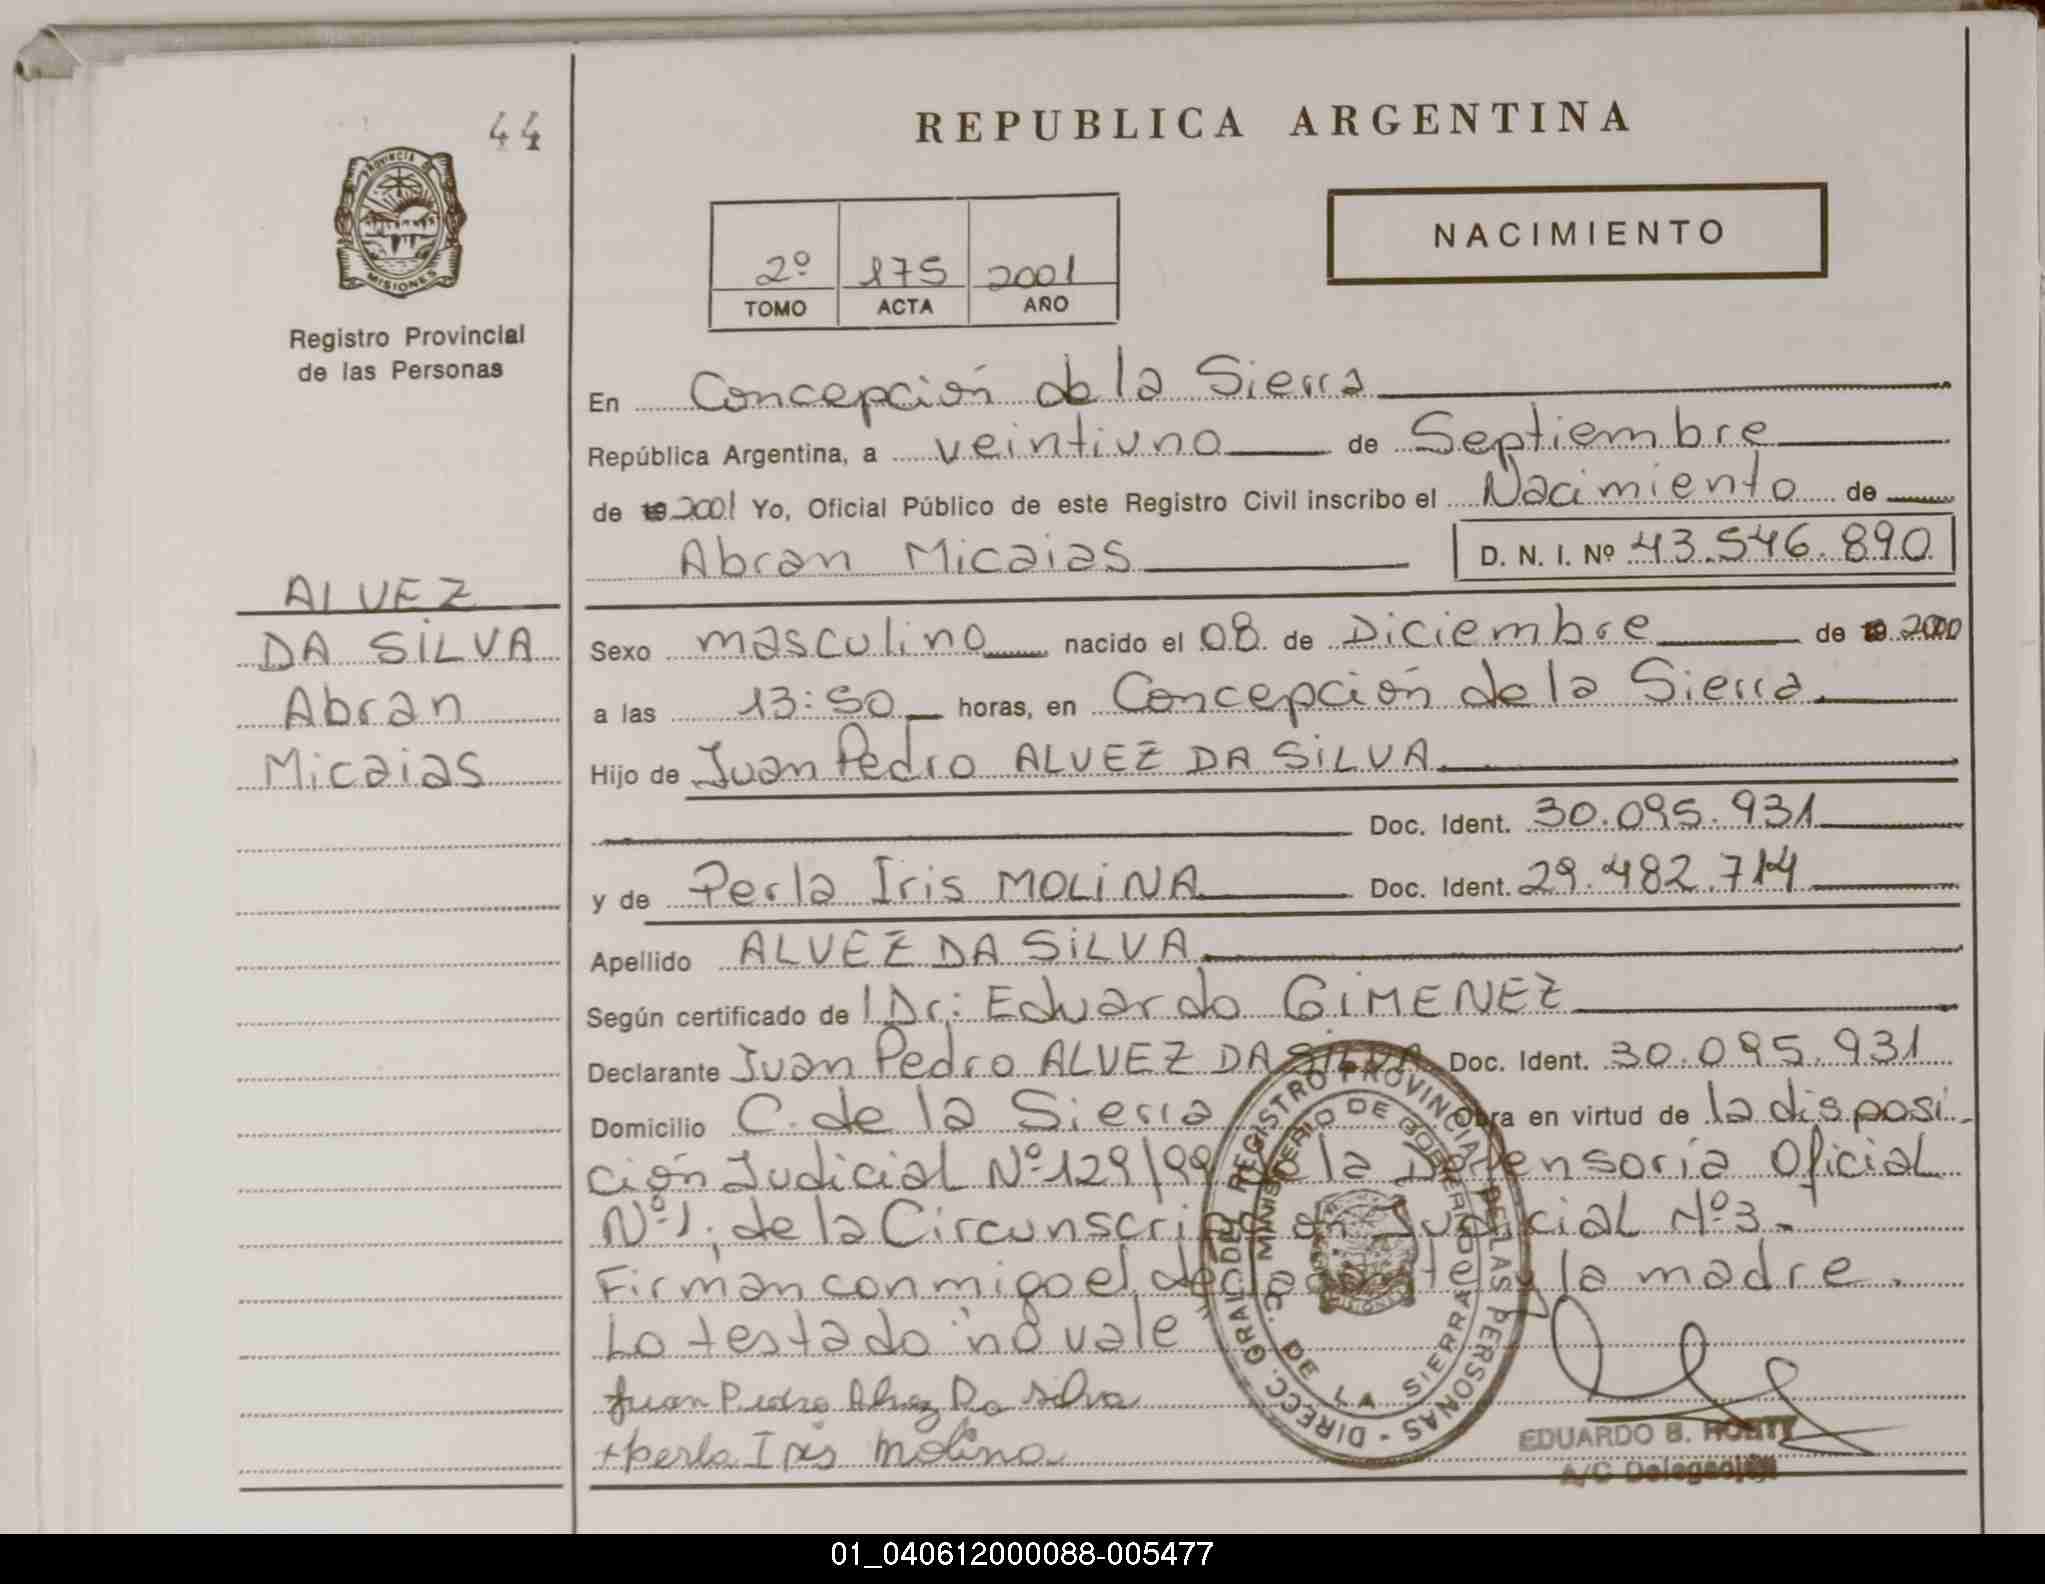 44
REPUBLICA ARGENTINA
PROVINCIA DE
MISIONES
Registro Provincial
de las Personas
NACIMIENTO
2º 175 2001
TOMO ACTA AÑO
En Concepción de la Sierra
República Argentina, a veintiuno de Septiembre
de 19 2001 Yo, Oficial Público de este Registro Civil inscribo el Nacimiento de
Abran Micaias D. N. I. Nº 43.546.890
ALVEZ
DA SILVA
Abran
Micaias
Sexo masculino nacido el 08 de Diciembre de 19 2000
a las 13:50 horas, en Concepción de la Sierra
Hijo de Juan Pedro ALVEZ DA SILVA
Doc. Ident. 30.095.931
y de Perla Iris MOLINA Doc. Ident. 29.482.714
Apellido ALVEZ DA SILVA
Según certificado de l Dr: Eduardo GIMENEZ
Declarante Juan Pedro ALVEZ DA SILVA Doc. Ident. 30.095.931
Domicilio C. de la Sierra Obra en virtud de la disposi
ción Judicial Nº 129/99 de la Defensoría Oficial
Nº 1, de la Circunscripción Judicial Nº 3.
Firman conmigo el declarante y la madre.
Lo testado "no vale
Juan Pedro Alvez Da Silva
Perla Iris Molina
DIRECC. GRAL. DEL REGISTRO PROVINCIAL DE LAS PERSONAS
MINISTERIO DE GOBIERNO
C. DE LA SIERRA
EDUARDO B.
A/C Delegación
01_040612000088-005477